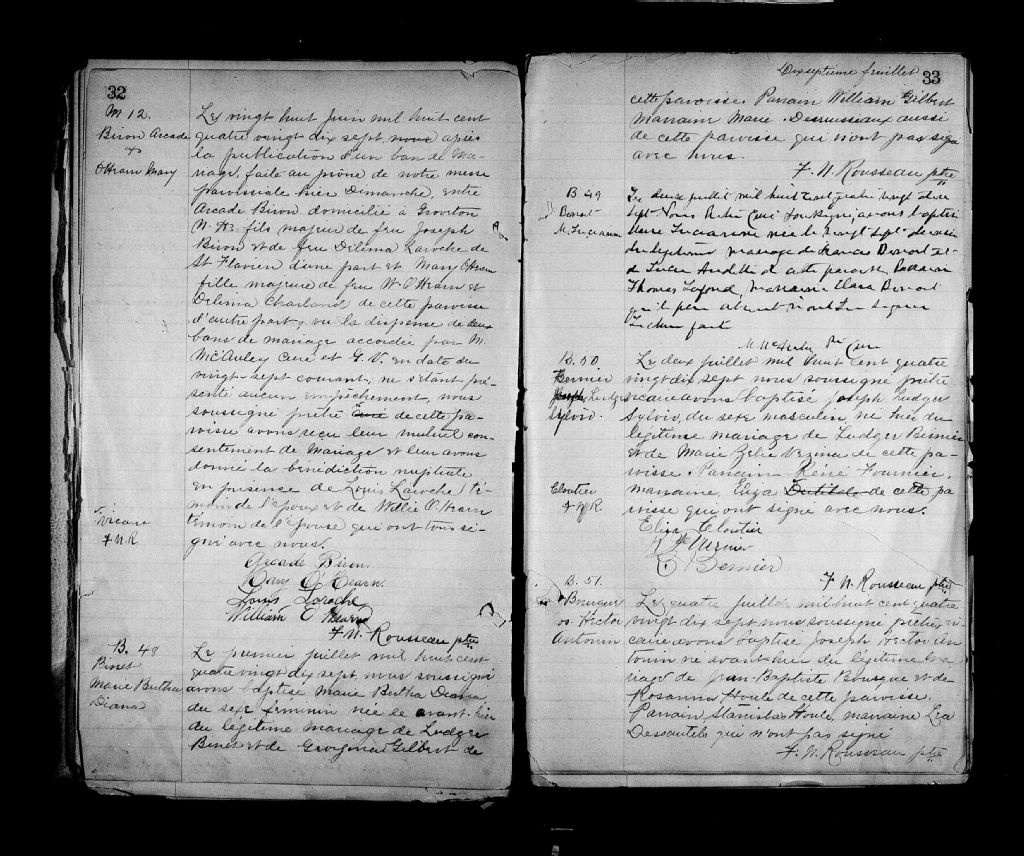 32
M 12.
Biron Arcade
+
OHearn Mary
Le vingt huit juin mil huit cent
quatre vingt dix sept nous après
la publication d'un ban de Ma-
riage, faite au prône de notre messe
paroissiale hier Dimanche, entre
Arcade Biron domicilié à Groveton
N. H. fils majeur de feu Joseph
Biron et de feu Delima Laroche de
St Flavien d'une part et Mary OHearn
fille majeure de feu W. O'Hearn et
Delima Charland de cette paroisse
d'autre part, vu la dispense de deux
bans de mariage accordée par M.
McAuley Curé et G. V. en date du
vingt-sept courant, ne s'étant pré-
senté aucun empêchement, nous
soussigné prêtre Curé de cette pa-
roisse avons reçu leur mutuel con-
sentement de Mariage et leur avons
donné la bénédiction nuptiale
en présence de Louis Laroche té-
moin de l'époux et de Willie O'Hearn
témoin de l'épouse qui ont tous si-
gné avec nous.
vicaire
F. N. R
Arcade Biron
Mary O'Hearn
Louis Laroche
William O Hearn
F. N. Rousseau ptre
B. 48
Binet
Marie Bertha
Diana
Le premier juillet mil huit cent
quatre vingt dix sept nous soussigné
avons baptisé Marie Bertha Diana
du sexe féminin née le avant-hier
du légitime Mariage de Ludger
Binet et de Georgina Gilbert de
Dix septième feuillet
33
cette paroisse. Parrain William Gilbert
Marraine Marie Desruisseaux aussi
de cette paroisse qui n'ont pas signé
avec nous.
F. N. Rousseau ptre
B 49
Benoit
M. Lucianna
Le deux juillet mil huit cent quatre vingt dix
sept Nous Prêtre Curé soussigné avons baptisé
Marie Lucianna née le vingt sept de
du légitime mariage de Francis Benoit et
de Lucie Audette de cette paroisse Parrain
Thomas Laford, marraine Clara Benoit
qui le père absent n'ont su signer
Lecture faite
M McAuley Ptre Curé
B. 50
Bernier
Joseph Ludger
Sylvio.
Le deux juillet mil huit cent quatre
vingt dix sept nous soussigné prêtre
vicaire avons baptisé Joseph Ludger
Sylvio, du sexe masculin, né hier du
légitime mariage de Ludger Bernier
et de Marie Zélie Vézina de cette pa-
roisse. Parrain Réné Fournier,
marraine, Eliza Dutilele de cette pa
roisse qui ont signé avec nous.
Cloutier
F N R
Eliza Cloutier
Bernier
F. N. Rousseau ptre
B. 51.
Bousque
os. Hector
Antonin
Le quatre juillet mil huit cent quatre
vingt dix sept nous soussigné prêtre vi
caire avons baptisé Joseph Hector An
tonin né avant-hier du légitime ma
riage de Jean-Baptiste Bousque et de
Rosanna Houle de cette paroisse.
Parrain Stanislas Houle, marraine Léa
Desautels qui n'ont pas signé
F. N. Rousseau ptre